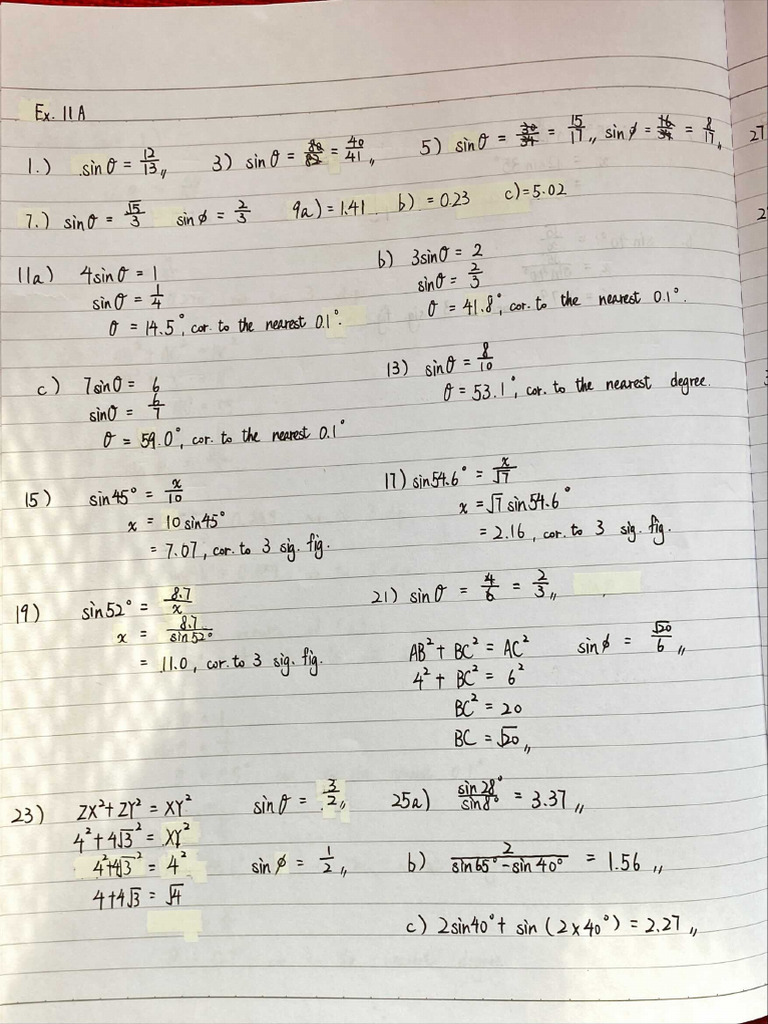 Ex. 11A
1.) sinθ = 12/13,, 3) sinθ = 80/82 = 40/41,, 5) sinθ = 30/34 = 15/17,, sinφ = 16/34 = 8/17,, 27
7.) sinθ = √15/3 sinφ = 2/3 9a) = 1.41 b) = 0.23 c) = 5.02
11a) 4sinθ = 1
sinθ = 1/4
θ = 14.5°, cor. to the nearest 0.1°.
b) 3sinθ = 2
sinθ = 2/3
θ = 41.8°, cor. to the nearest 0.1°.
c) 7sinθ = 6
sinθ = 6/7
θ = 59.0°, cor. to the nearest 0.1°
13) sinθ = 8/10
θ = 53.1°, cor. to the nearest degree.
15) sin45° = x/10
x = 10sin45°
= 7.07, cor. to 3 sig. fig.
17) sin54.6° = x/√7
x = √7 sin54.6°
= 2.16, cor. to 3 sig. fig.
19) sin52° = 8.7/x
x = 8.7/sin52°
= 11.0, cor. to 3 sig. fig.
21) sinθ = 4/6 = 2/3,,
AB² + BC² = AC² sinφ = √20/6,,
4² + BC² = 6²
BC² = 20
BC = √20,,
23) ZX² + ZY² = XY² sinθ = 3/2,,
4² + 4√3² = XY²
4² + 4√3² = 4² sinφ = 1/2,,
4 + 4√3 = √4
25a) sin28°/sin8° = 3.37,,
b) 2/(sin65° - sin40°) = 1.56,,
c) 2sin40° + sin(2×40°) = 2.27,,